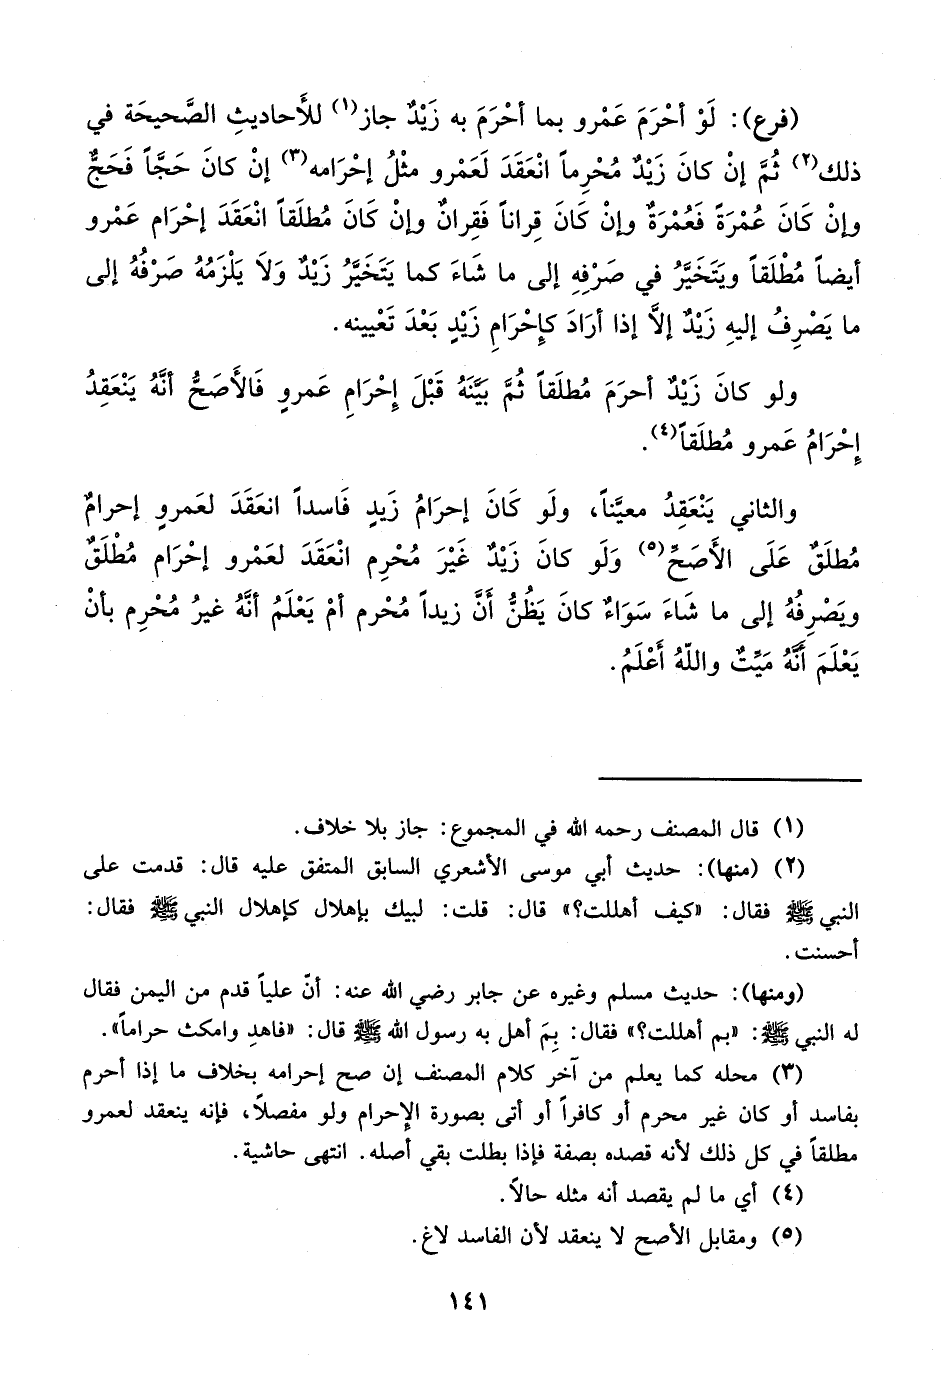 (فرع): لَوْ أحْرَمَ عَمْرو بما أحْرَمَ به زَيْدٌ جاز(١) للأَحاديثِ الصَّحيحَة في
ذلك(٢) ثُمَّ إنْ كانَ زَيْدٌ مُحْرِماً انْعَقَدَ لَعَمْرو مثْلُ إحْرَامه(٣) إنْ كانَ حَجَّاً فَحَجٌّ
وإنْ كَانَ عُمْرَةً فَعُمْرَةٌ وإنْ كَانَ قِراناً فَقِرانٌ وإنْ كَانَ مُطلَقاً انْعَقَدَ إحْرَام عَمْرو
أيضاً مُطْلَقاً ويَتَخَيَّرُ في صَرْفِهِ إلى ما شَاءَ كما يَتَخَيَّرُ زَيْدٌ وَلَا يَلْزَمُهُ صَرْفُهُ إلى
ما يَصْرِفُ إليهِ زَيْدٌ إلَّا إذا أرَادَ كإحْرَامِ زَيْدٍ بَعْدَ تَعْيينه.
ولو كانَ زَيْدٌ أحرَمَ مُطلَقاً ثُمَّ بَيَّنَهُ قَبْلَ إحْرَامِ عَمروٍ فَالأَصَحُّ أنَّهُ يَنْعَقِدُ
إحْرَامُ عَمرو مُطلَقاً(٤).
والثاني يَنْعَقِدُ معيَّناً، ولَو كَانَ إحرَامُ زَيدٍ فَاسداً انعَقَدَ لعَمروٍ إحرامٌ
مُطلَقٌ عَلَى الأصَحِّ(٥) وَلَو كانَ زَيْدٌ غَيْرَ مُحْرِم انْعَقَدَ لعَمْرو إحْرَام مُطْلَقٌ
ويَصْرِفُهُ إلى ما شَاءَ سَوَاءٌ كانَ يَظُنُّ أنَّ زيداً مُحْرم أمْ يَعْلَمُ أنَّهُ غيرُ مُحْرِم بأنْ
يَعْلَمَ أنَّهُ مَيِّتٌ واللّهُ أعْلَمُ.
(١) قال المصنف رحمه الله في المجموع: جاز بلا خلاف.
(٢) (منها): حديث أبي موسى الأشعري السابق المتفق عليه قال: قدمت على
النبي ﷺ فقال: «كيف أهللت؟» قال: قلت: لبيك بإهلال كإهلال النبي ﷺ فقال:
أحسنت.
(ومنها): حديث مسلم وغيره عن جابر رضي الله عنه: أنّ علياً قدم من اليمن فقال
له النبي ﷺ: «بم أهللت؟» فقال: بِمَ أهل به رسول الله ﷺ قال: «فاهدِ وامكث حراماً».
(٣) محله كما يعلم من آخر كلام المصنف إن صح إحرامه بخلاف ما إذا أحرم
بفاسد أو كان غير محرم أو كافراً أو أتى بصورة الإحرام ولو مفصلاً، فإنه ينعقد لعمرو
مطلقاً في كل ذلك لأنه قصده بصفة فإذا بطلت بقي أصله. انتهى حاشية.
(٤) أي ما لم يقصد أنه مثله حالاً.
(٥) ومقابل الأصح لا ينعقد لأن الفاسد لاغ.
١٤١